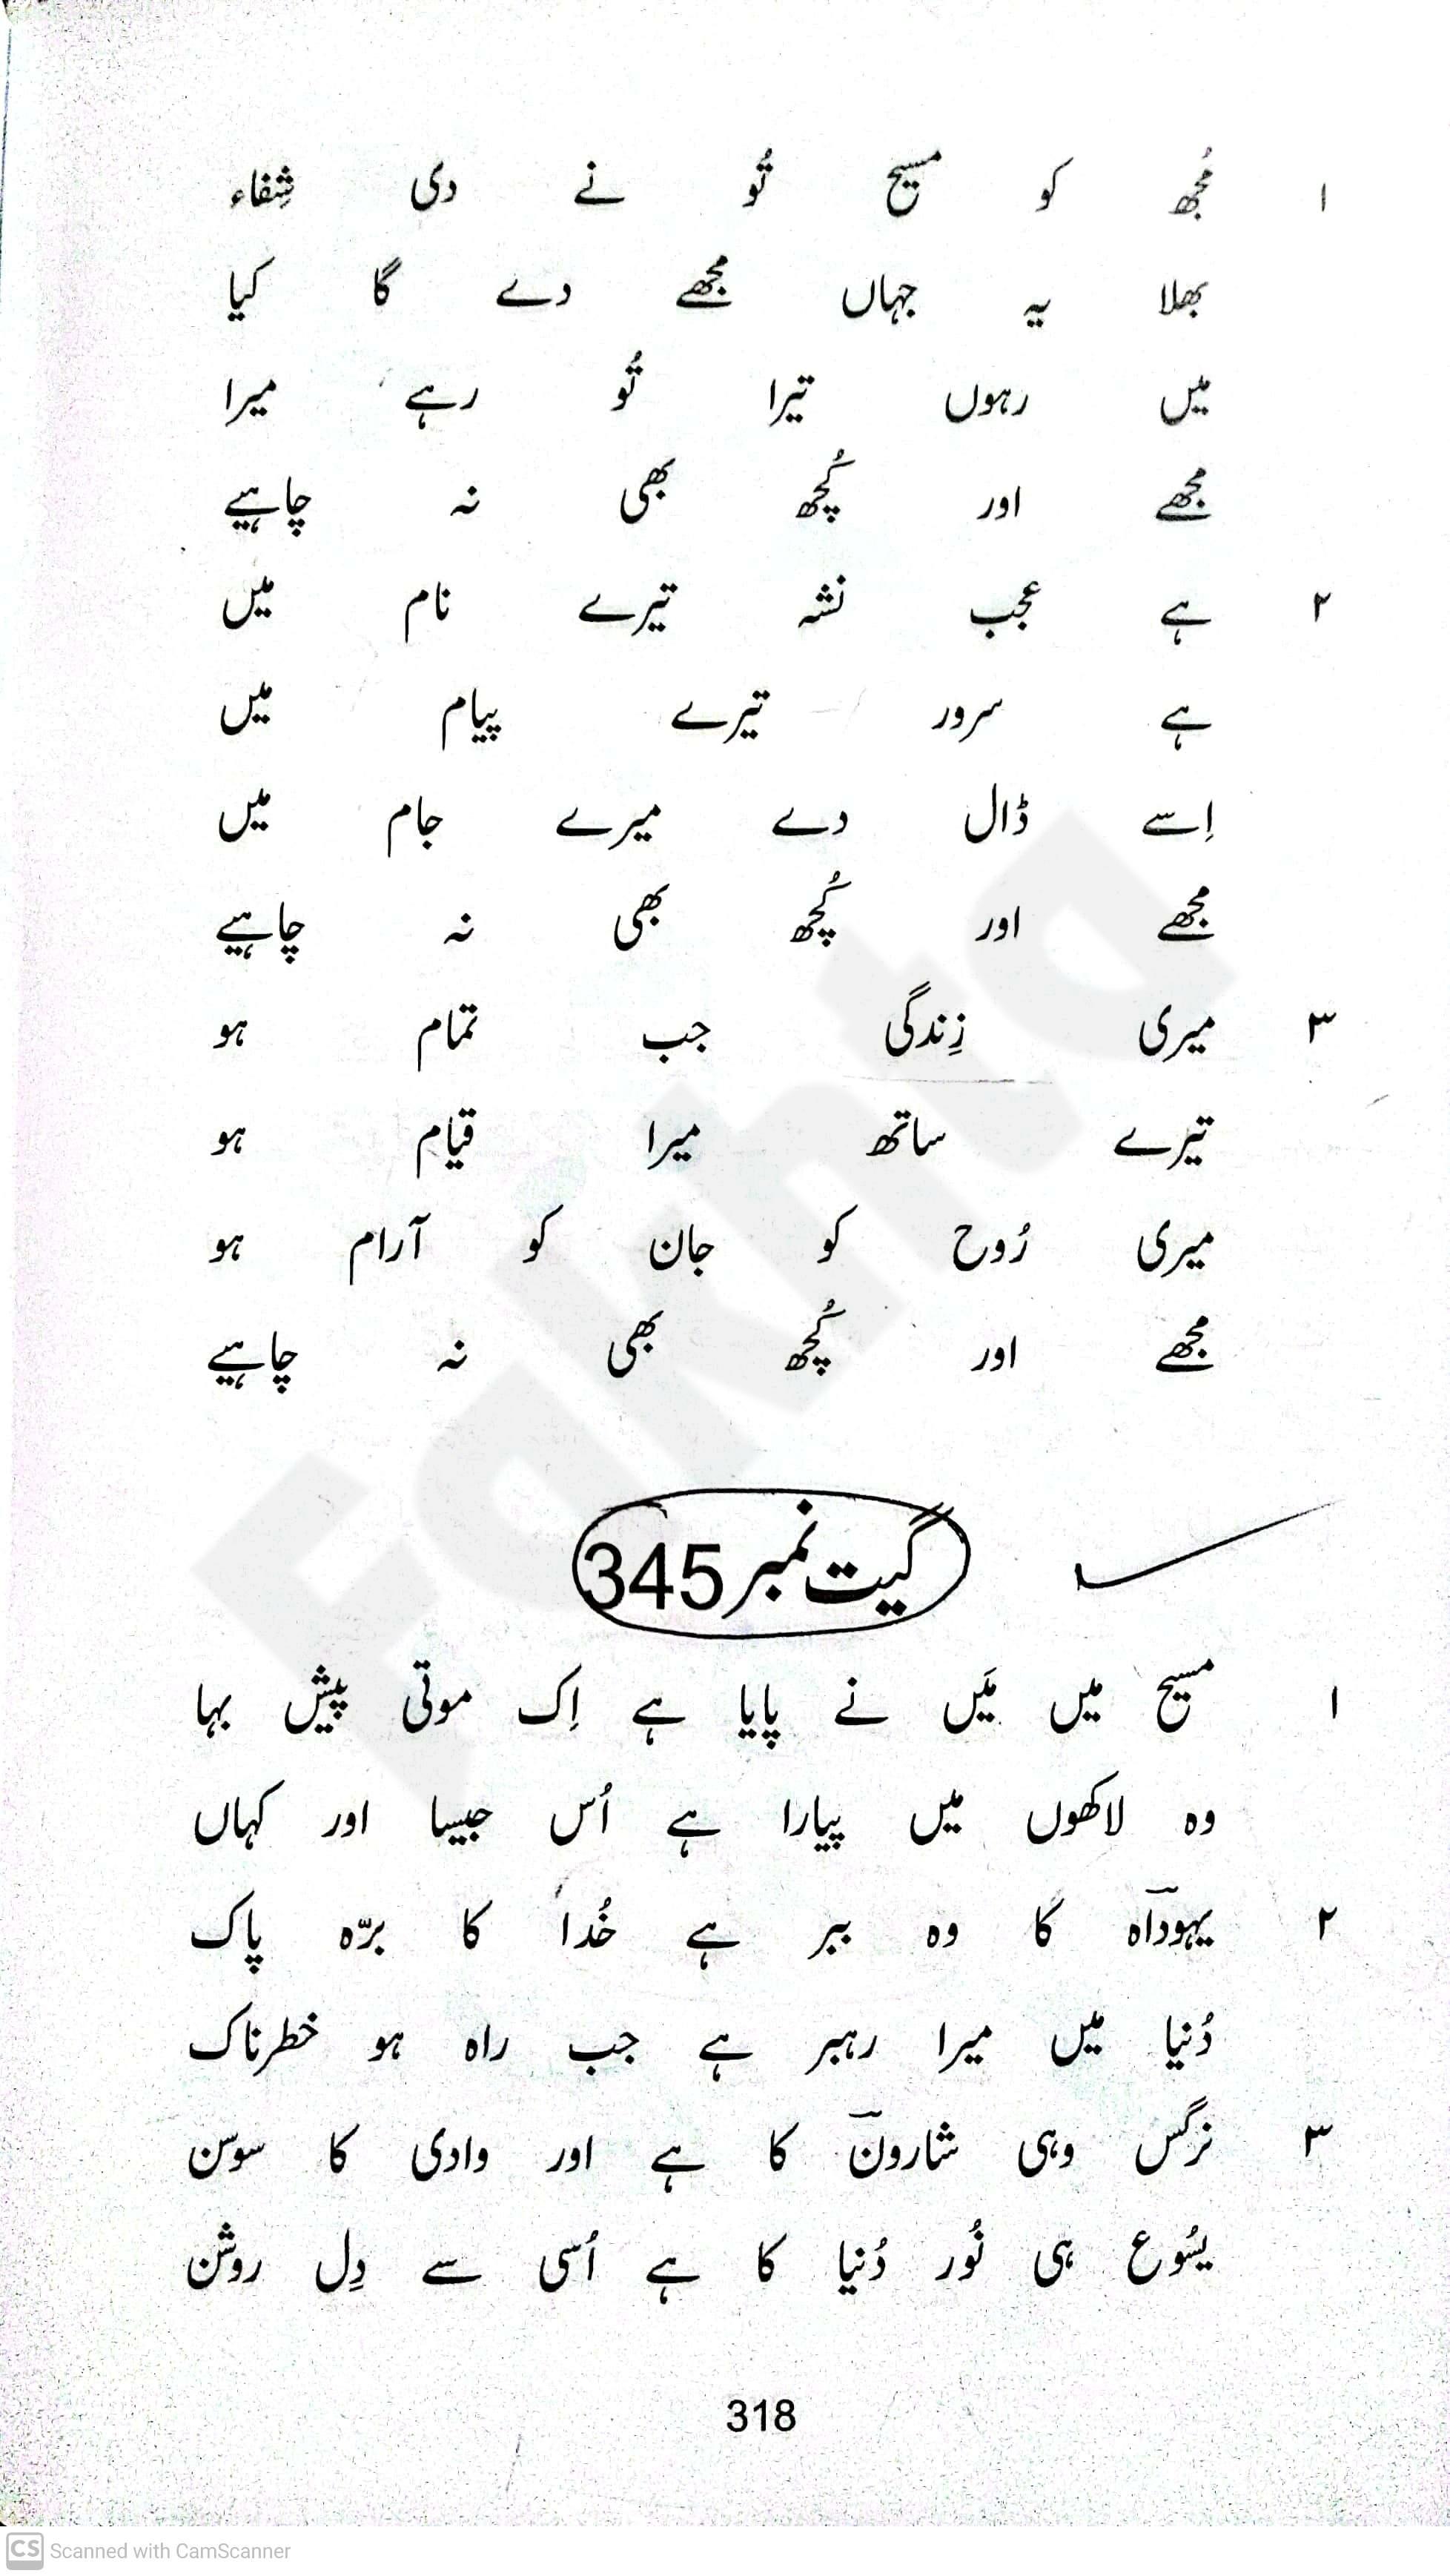 ۱ مُجھ کو مسیح تُو نے دی شِفاء
بھلا یہ جہاں مجھے دے گا کیا
میں رہوں تیرا تُو رہے میرا
مجھے اور کُچھ بھی نہ چاہیے
۲ ہے عجب نشہ تیرے نام میں
ہے سرور تیرے پیام میں
اِسے ڈال دے میرے جام میں
مجھے اور کُچھ بھی نہ چاہیے
۳ میری زِندگی جب تمام ہو
تیرے ساتھ میرا قیام ہو
میری رُوح کو جان کو آرام ہو
مجھے اور کُچھ بھی نہ چاہیے
گیت نمبر 345
۱ مسیح میں مَیں نے پایا ہے اِک موتی پیش بہا
وہ لاکھوں میں پیارا ہے اُس جیسا اور کہاں
۲ یہوداؔہ کا وہ ببر ہے خُدا کا برّہ پاک
دُنیا میں میرا رہبر ہے جب راہ ہو خطرناک
۳ نرگس وہی شارونؔ کا ہے اور وادی کا سوسن
یسُوع ہی نُور دُنیا کا ہے اُسی سے دِل روشن
318
Fakhta
CS Scanned with CamScanner